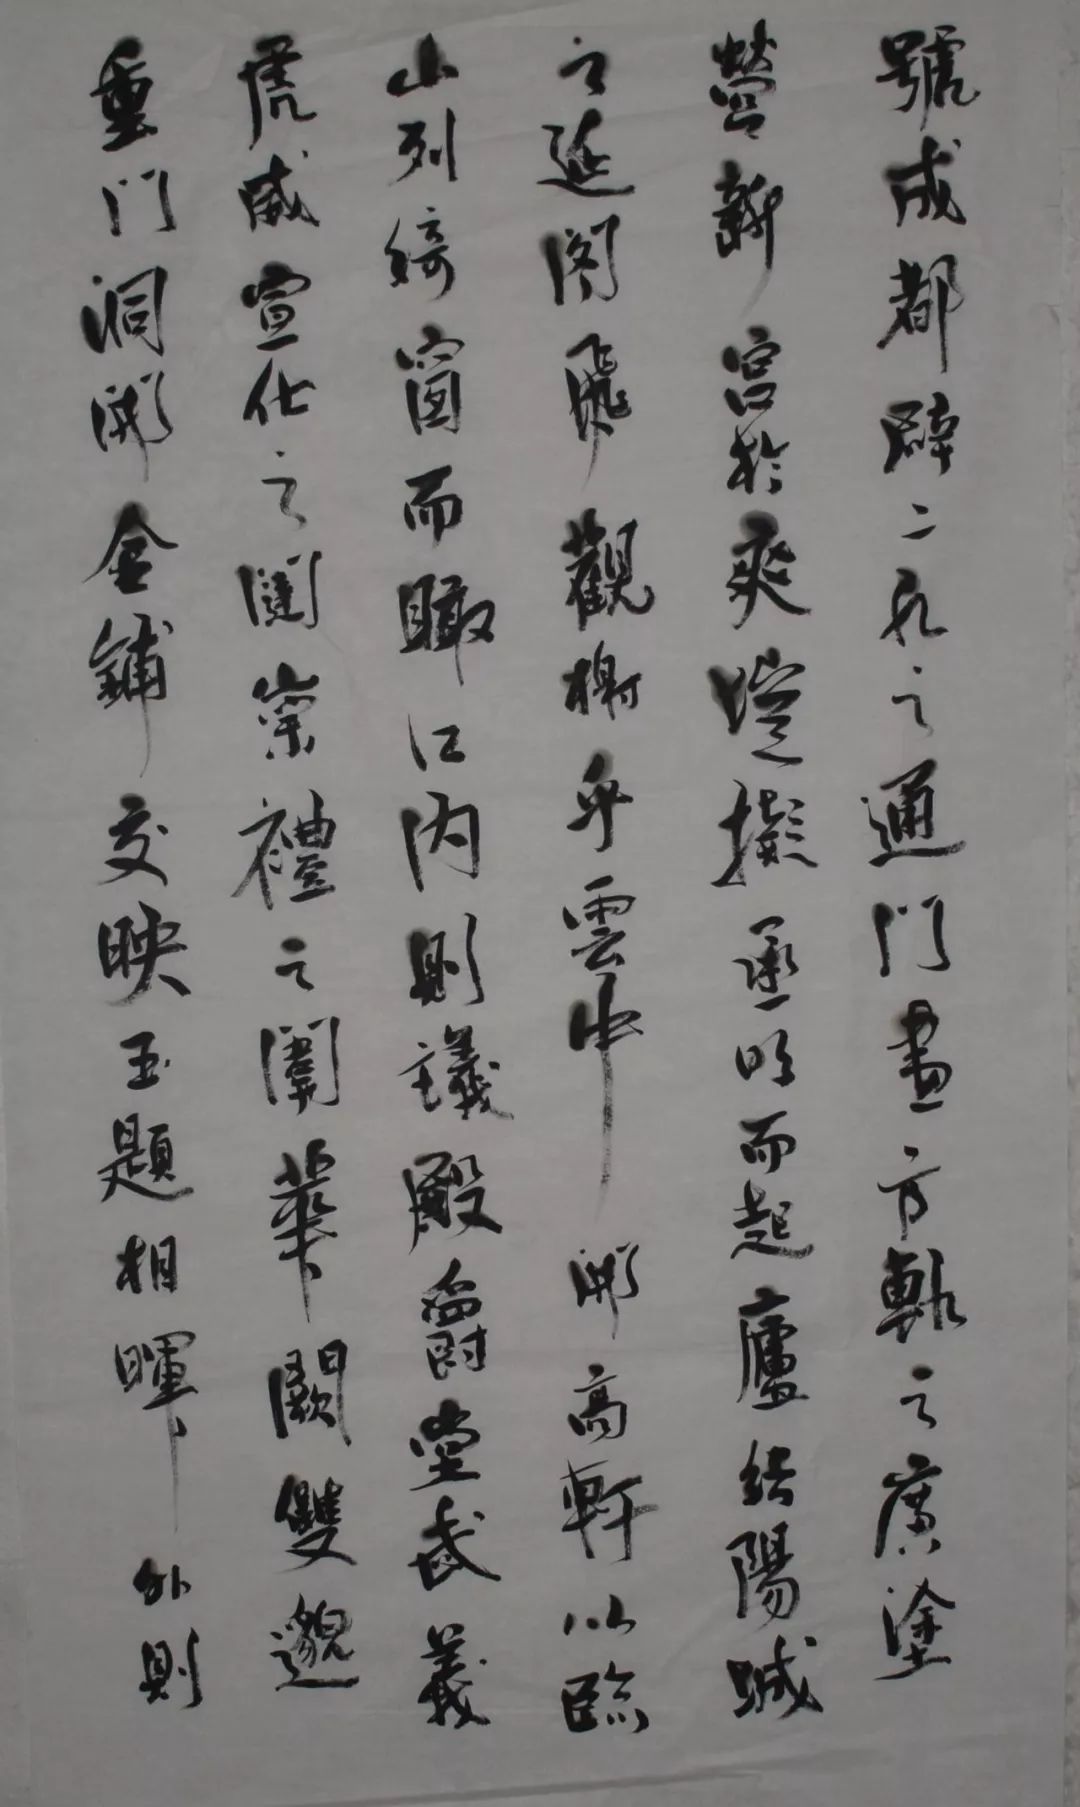 號成都辟二九之通門畫方軌之廣塗
營新宮於爽塏擬承明而起廬結陽城
之延閣飛觀榭乎雲中開高軒以臨
山列綺窗而瞰江內則議殿爵堂武義
虎威宣化之闥崇禮之闈華闕雙邈
重門洞開金鋪交映玉題相暉外則